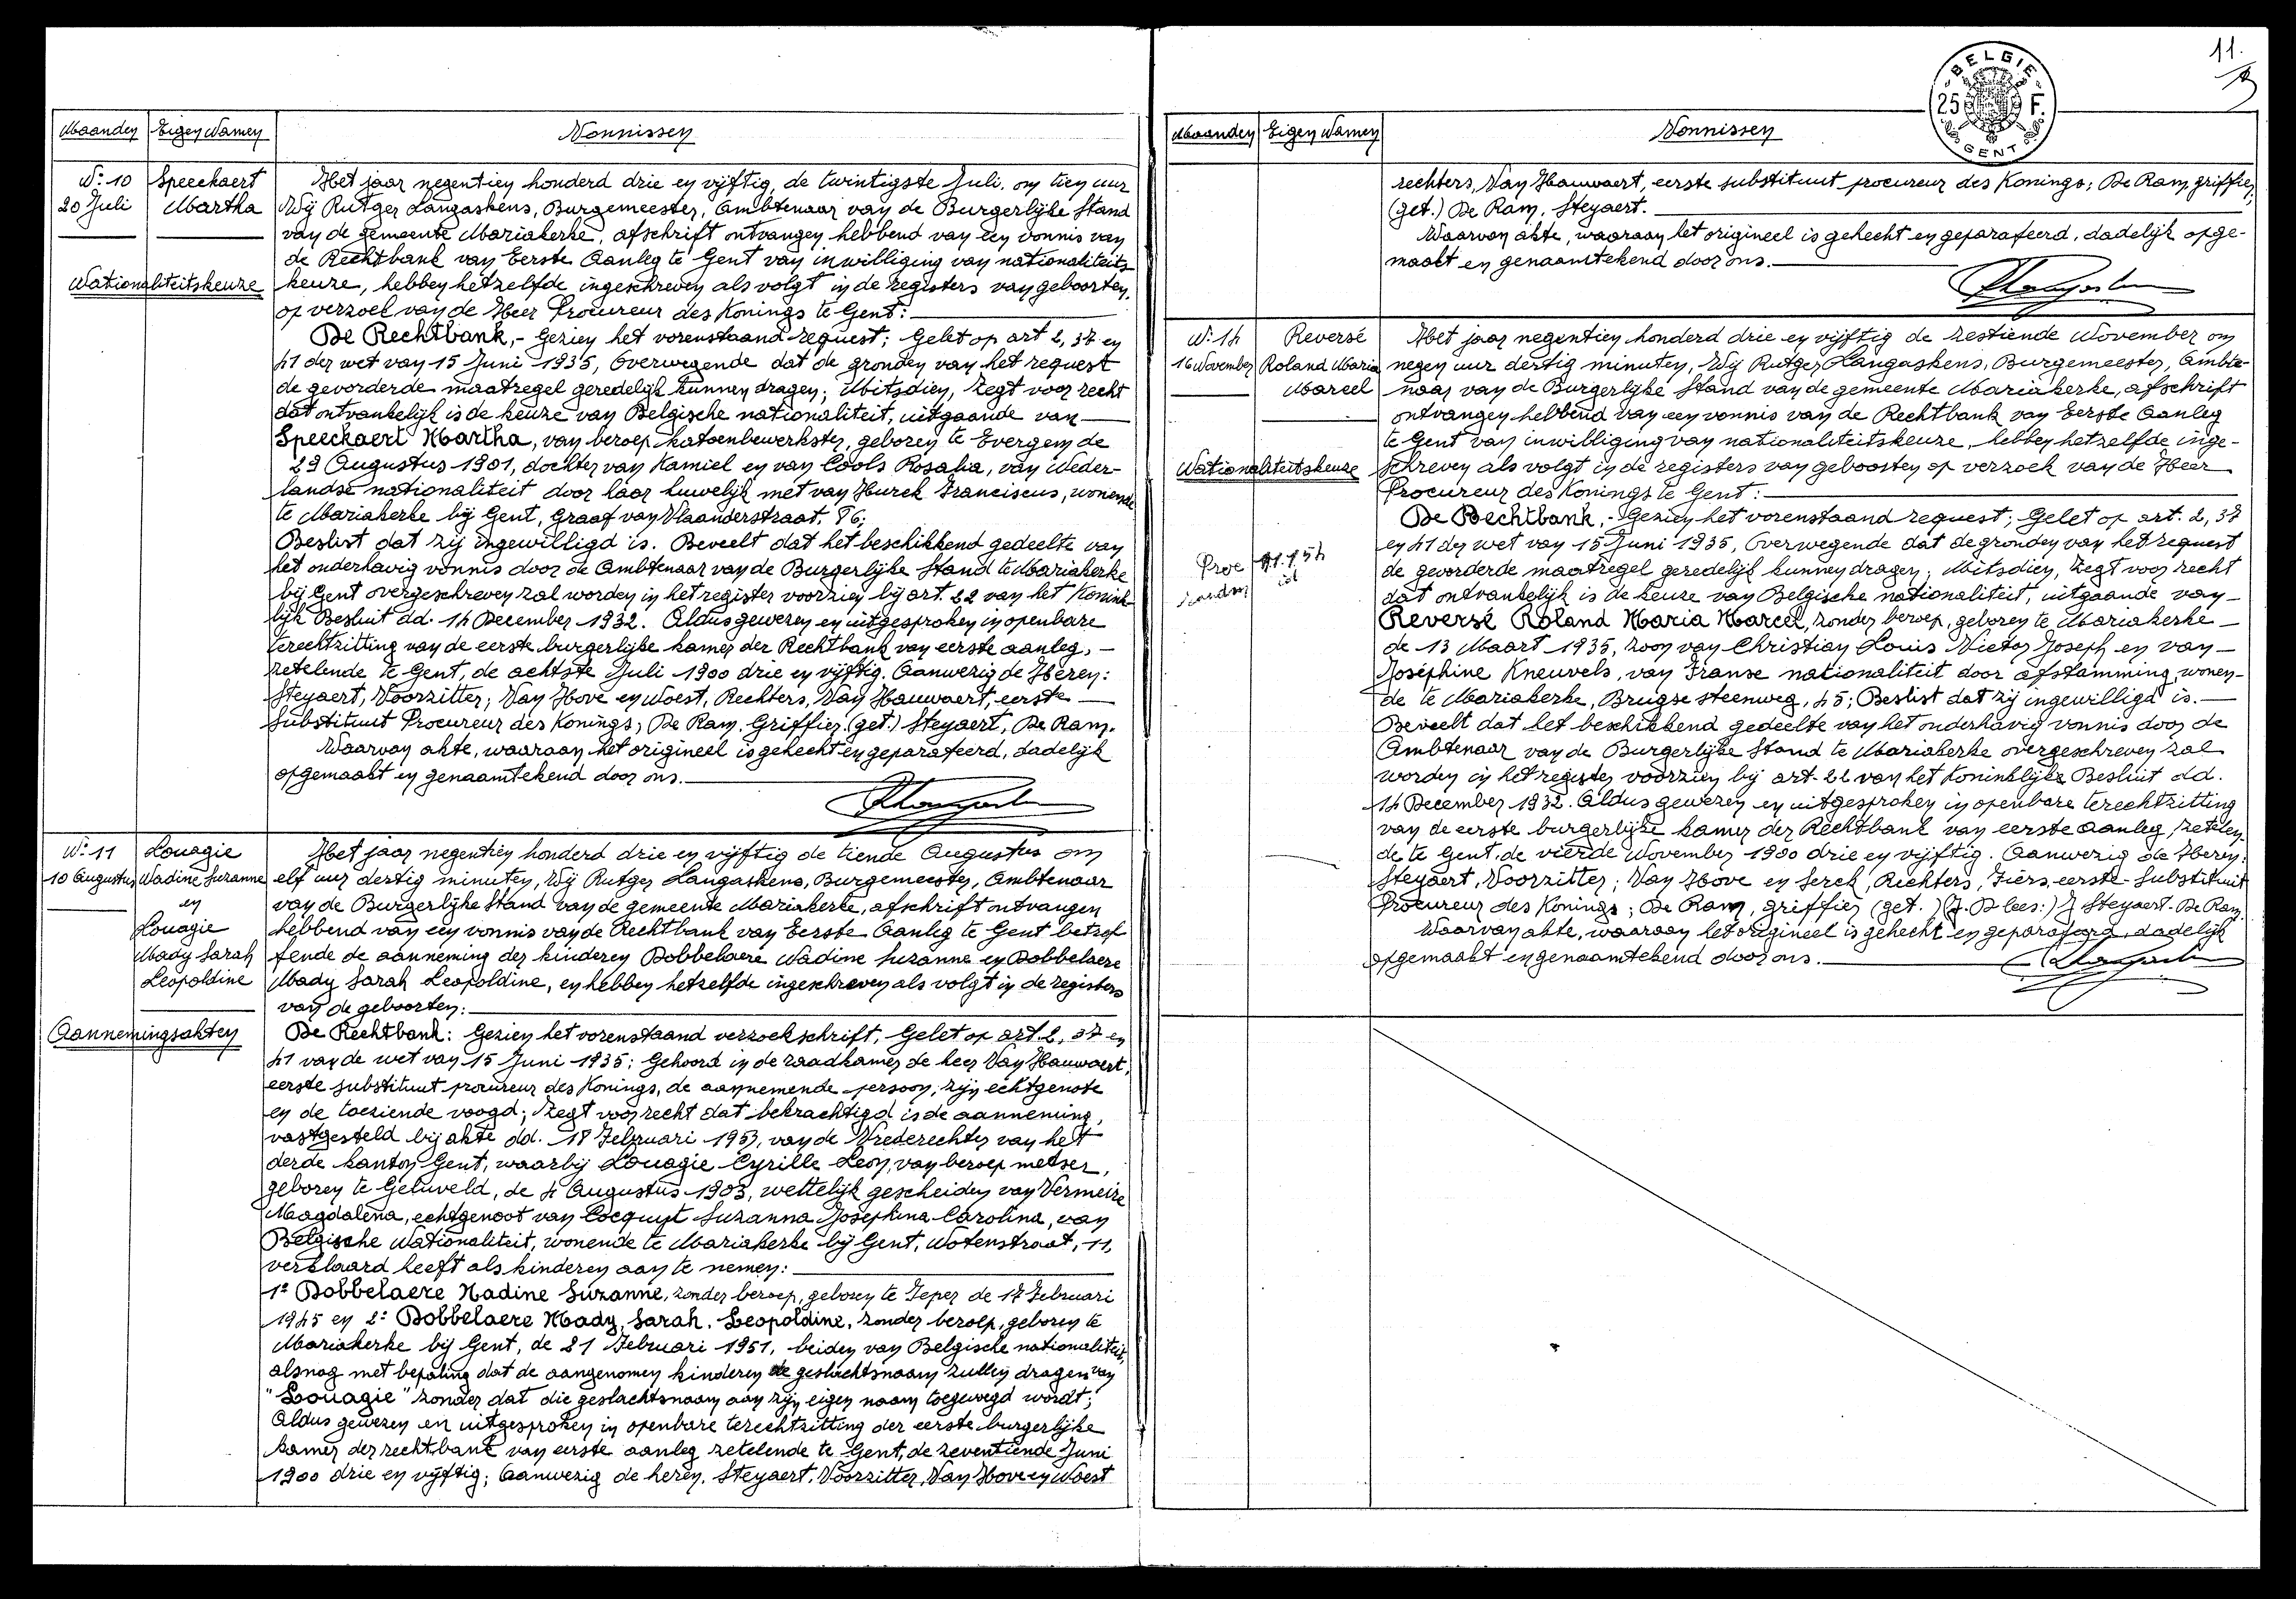 Maanden Eigen Namen Vonnissen
N: 10 Speeckaert
20 Juli Martha
Nationaliteitskeuze
Het jaar negentien honderd drie en vijftig, de twintigste Juli, om tien uur
Wij Rutger Langaskens, Burgemeester, Ambtenaar van de Burgerlijke Stand
van de gemeente Mariakerke, afschrift ontvangen hebbend van een vonnis van
de Rechtbank van Eerste Aanleg te Gent van inwilliging van nationaliteits-
keuze, hebben hetzelfde ingeschreven als volgt in de registers van geboorten,
op verzoek van de Heer Procureur des Konings te Gent:
De Rechtbank,- Gezien het vorenstaand request; Gelet op art 2, 37 en
41 der wet van 15 Juni 1935, Overwegende dat de gronden van het request
de gevorderde maatregel geredelijk kunnen dragen; Mitsdien, zegt voor recht
dat ontvankelijk is de keuze van Belgische nationaliteit, uitgaande van
Speeckaert Martha, van beroep katoenbewerkster, geboren te Evergem de
29 Augustus 1901, dochter van Kamiel en van Cools Rosalia, van Neder-
landse nationaliteit door haar huwelijk met van Hurck Franciscus, wonende
te Mariakerke bij Gent, Graaf van Vlaanderstraat, 86;
Beslist dat zij ingewilligd is. Beveelt dat het beschikkend gedeelte van
het onderhavig vonnis door de Ambtenaar van de Burgerlijke Stand te Mariakerke
bij Gent overgeschreven zal worden in het register voorzien bij art. 22 van het Konink-
lijk Besluit dd. 14 December 1932. Aldus gewezen en uitgesproken in openbare
terechtzitting van de eerste burgerlijke kamer der Rechtbank van eerste aanleg,
zetelende te Gent, de achtste Juli 1900 drie en vijftig. Aanwezig de Heren:
Steyaert, Voorzitter; Van Hove en Noest, Rechters, Van Hauwaert, eerste
Substituut Procureur des Konings; De Ram, Griffier (get.) Steyaert, De Ram.
Waarvan akte, waaraan het origineel is gehecht en geparafeerd, dadelijk
opgemaakt en genaamtekend door ons.
N: 11 Louagie
10 Augustus Nadine Suzanne
en
Louagie
Mady Sarah
Leopoldine
Aannemingsakten
Het jaar negentien honderd drie en vijftig de tiende Augustus om
elf uur dertig minuten, Wij Rutger Langaskens, Burgemeester, Ambtenaar
van de Burgerlijke Stand van de gemeente Mariakerke, afschrift ontvangen
hebbend van een vonnis van de Rechtbank van Eerste Aanleg te Gent betref
fende de aanneming der kinderen Dobbelaere Nadine Suzanne en Dobbelaere
Mady Sarah Leopoldine, en hebben hetzelfde ingeschreven als volgt in de registers
van de geboorten:
De Rechtbank: Gezien het vorenstaand verzoekschrift, Gelet op art 2, 37 en
41 van de wet van 15 Juni 1935; Gehoord in de raadkamer de heer Van Hauwaert,
eerste substituut procureur des Konings, de aannemende persoon, zijn echtgenote
en de toeziende voogd; Zegt voor recht dat bekrachtigd is de aanneming,
vastgesteld bij akte dd. 18 Februari 1953, van de Vrederechter van het
derde kanton Gent, waarbij Louagie Cyrille Leon, van beroep metser,
geboren te Geluveld, de 4 Augustus 1903, wettelijk gescheiden van Vermeire
Magdalena, echtgenoot van Cocquyt Suzanna Josephina Carolina, van
Belgische Nationaliteit, wonende te Mariakerke bij Gent, Notenstraat, 11,
verklaard heeft als kinderen aan te nemen:
1: Dobbelaere Nadine Suzanne, zonder beroep, geboren te Ieper de 17 Februari
1945 en 2: Dobbelaere Mady, Sarah, Leopoldine, zonder beroep, geboren te
Mariakerke bij Gent, de 21 Februari 1951, beiden van Belgische nationaliteit,
alsnog met bepaling dat de aangenomen kinderen de geslachtsnaam zullen dragen van
"Louagie" zonder dat die geslachtsnaam aan zijn eigen naam toegevoegd wordt;
Aldus gewezen en uitgesproken in openbare terechtzitting der eerste burgerlijke
kamer der rechtbank van eerste aanleg zetelende te Gent, de zeventiende Juni
1900 drie en vijftig; Aanwezig de heren, Steyaert, Voorzitter, Van Hove en Noest
11.
BELGIE
25 F.
GENT
Maanden Eigen Namen Vonnissen
rechters, Van Hauwaert, eerste substituut procureur des Konings; De Ram, griffier,
(get.) De Ram, Steyaert.
Waarvan akte, waaraan het origineel is gehecht en geparafeerd, dadelijk opge-
maakt en genaamtekend door ons.
N: 14 Reversé
16 November Roland Maria
Marcel
Nationaliteitskeuze
11.1.54
Het jaar negentien honderd drie en vijftig de zestiende November om
negen uur dertig minuten, Wij Rutger Langaskens, Burgemeester, Ambte-
naar van de Burgerlijke Stand van de gemeente Mariakerke, afschrift
ontvangen hebbend van een vonnis van de Rechtbank van Eerste Aanleg
te Gent van inwilliging van nationaliteitskeuze, hebben hetzelfde inge-
schreven als volgt in de registers van geboorten op verzoek van de Heer
Procureur des Konings te Gent:
De Rechtbank,- Gezien het vorenstaand request; Gelet op art. 2, 37
en 41 der wet van 15 Juni 1935, Overwegende dat de gronden van het request
de gevorderde maatregel geredelijk kunnen dragen; Mitsdien, Zegt voor recht
dat ontvankelijk is de keuze van Belgische nationaliteit, uitgaande van
Reversé Roland Maria Marcel, zonder beroep, geboren te Mariakerke
de 13 Maart 1935, zoon van Christian Louis Victor Joseph en van
Joséphine Kneuvels, van Franse nationaliteit door afstamming, wonen-
de te Mariakerke, Brugse steenweg, 45; Beslist dat zij ingewilligd is.
Beveelt dat het beschikkend gedeelte van het onderhavig vonnis door de
Ambtenaar van de Burgerlijke Stand te Mariakerke overgeschreven zal
worden in het register voorzien bij art. 22 van het Koninklijke Besluit dd.
14 December 1932. Aldus gewezen en uitgesproken in openbare terechtzitting
van de eerste burgerlijke kamer der Rechtbank van eerste aanleg, zetelen-
de te Gent, de vierde November 1900 drie en vijftig. Aanwezig de Heren:
Steyaert, Voorzitter; Van Hove en Serck, Rechters, Fiers, eerste-Substituut
Procureur des Konings; De Ram, griffier (get.) J Steyaert. De Ram.
Waarvan akte, waaraan het origineel is gehecht en geparafeerd, dadelijk
opgemaakt en genaamtekend door ons.